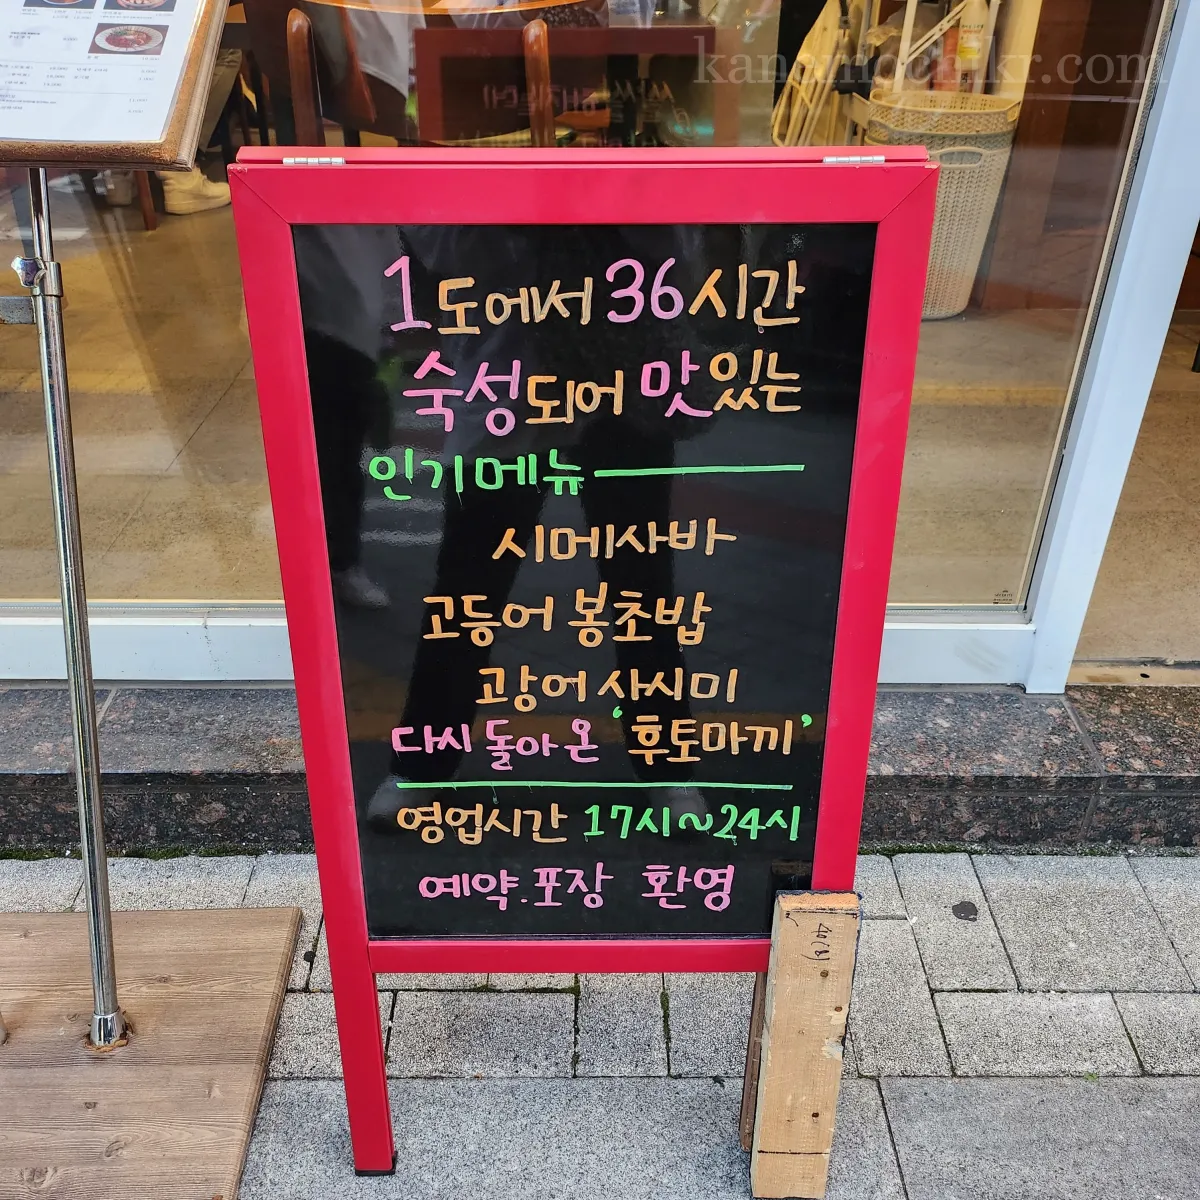 kanamochikr.com
1도에서 36시간
숙성되어 맛있는
인기메뉴
시메사바
고등어 봉초밥
광어 사시미
다시 돌아온 '후토마끼'
영업시간 17시~24시
예약.포장 환영